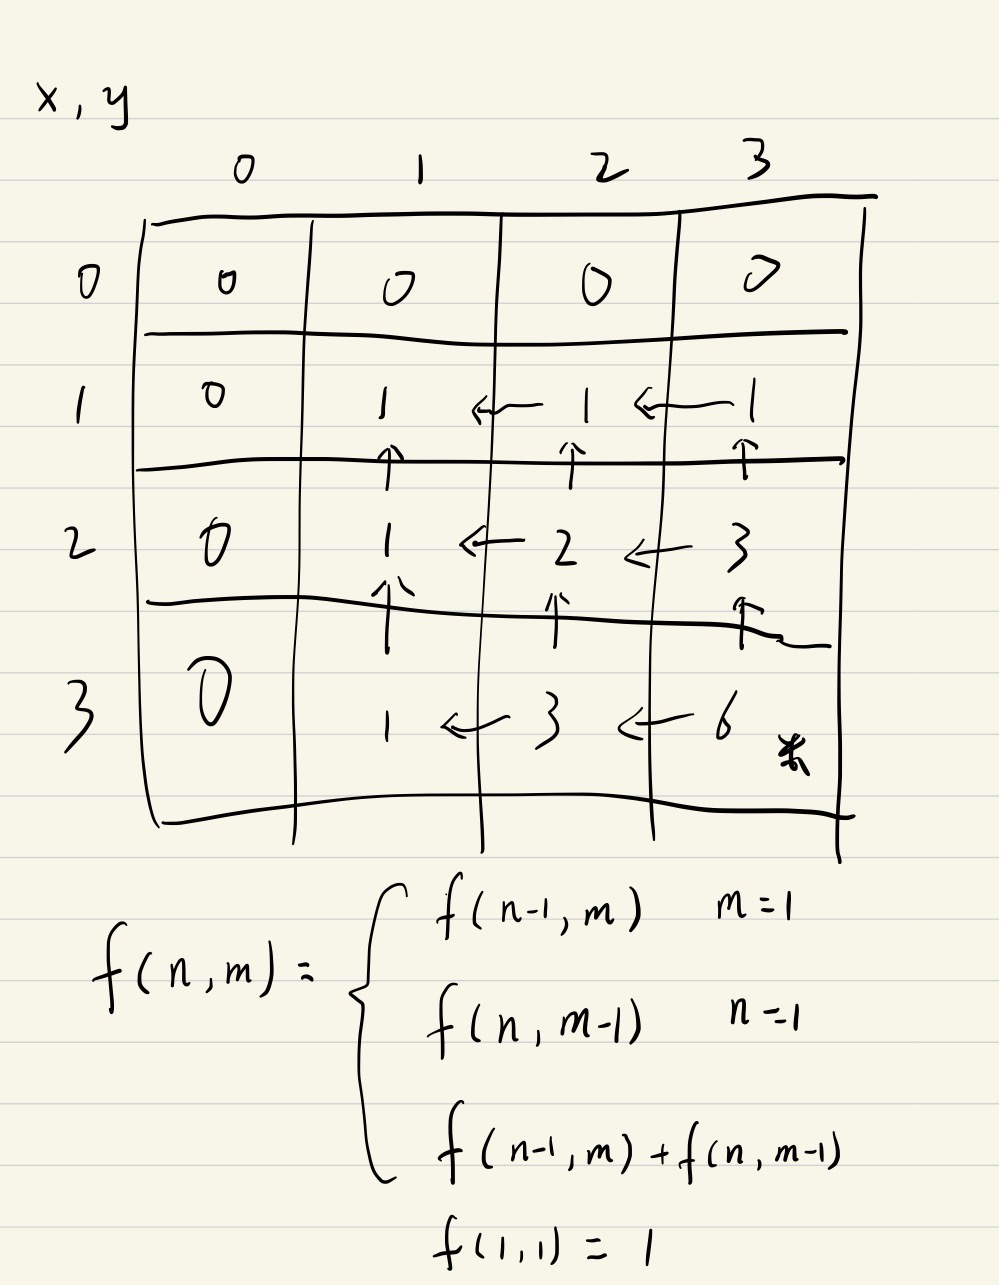 x, y
0 1 2 3
0 0 0 0 0
1 0 1 ← 1 ← 1
↑ ↑ ↑
2 0 1 ← 2 ← 3
↑ ↑ ↑
3 0 1 ← 3 ← 6 *
f(n-1, m) m=1
f(n, m) =
f(n, m-1) n=1
f(n-1, m) + f(n, m-1)
f(1, 1) = 1